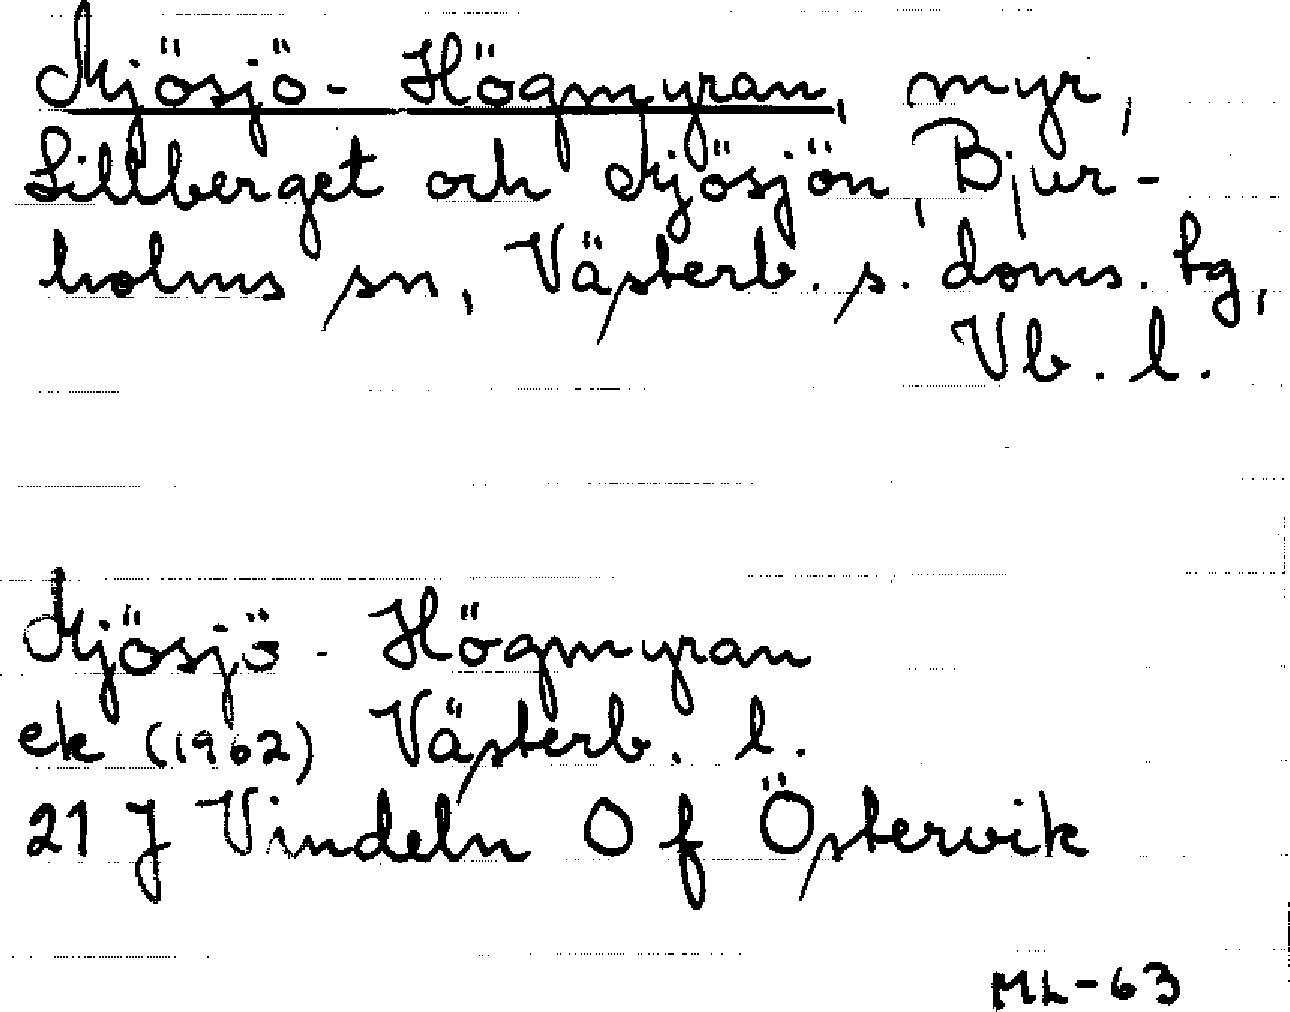 Mjösjö-Högmyran, myr,
Lillberget och Mjösjön, Bjur-
holms sn, Västerb. s. doms. tg,
Vb. l.
Mjösjö-Högmyran
ek (1962) Västerb. l.
21 J Vindeln 0 f Östervik
ML-63